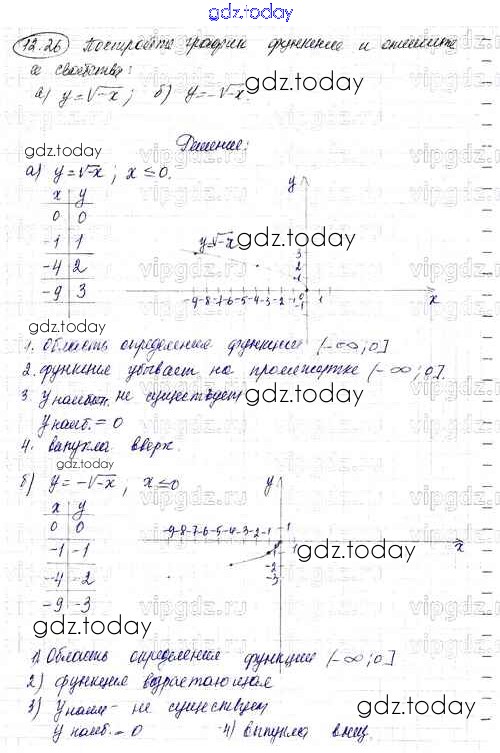 gdz.today
12.26 Постройте график функции и опишите
её свойства:
а) y=√-x; б) y=-√-x.
Решение:
а) y=√-x; x≤0.
x y
0 0
-1 1
-4 2
-9 3
y
y=√-x
3
2
1
-9-8-7-6-5-4-3-2-1 0 1
-1
x
1. Область определения функции (-∞;0]
2. функция убывает на промежутке (-∞;0].
3. y наиб. не существует
y наиб. = 0
4. выпукла вверх.
б) y=-√-x; x≤0
x y
0 0
-1 -1
-4 -2
-9 -3
y
-9-8-7-6-5-4-3-2-1 1
-1
-2
-3
x
1) Область определения функции (-∞;0]
2) функция возрастающая
3) y наим- не существует
y наиб. = 0 4) выпукла вниз.
gdz.today
vipgdz.ru